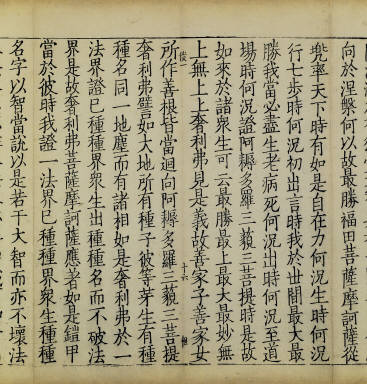 向於涅槃何以故最勝福田菩薩摩訶薩從
兜率天下時有如是自在力何況生時何況
行七步時何況初出言時我於世間最大最
勝我當必盡生老病死何況出時何況至道
場時何況證阿耨多羅三藐三菩提時是故
如來於諸衆生可云最勝最上最大最妙無
上無上上奢利弗見是義故善家子善家女
所作善根皆當迴向阿耨多羅三藐三菩提
奢利弗譬如大地所有種子彼等芽生有種
種名同一地塵而有諸相如是奢利弗於一
法界證已種種界衆生出種種名而不破法
界是故奢利弗菩薩摩訶薩應著如是鎧甲
當於彼時我證一法界已種種界衆生種種
名字以智當說以是若干大智而亦不壞法